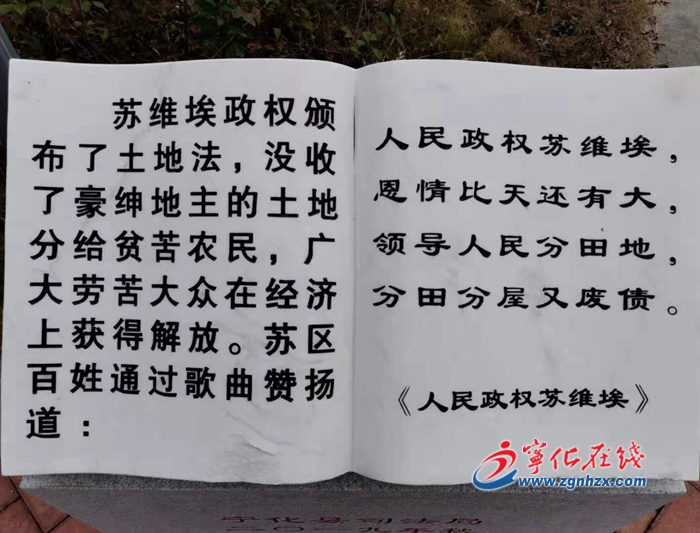 苏维埃政权颁
布了土地法，没收
了豪绅地主的土地
分给贫苦农民，广
大劳苦大众在经济
上获得解放。苏区
百姓通过歌曲赞扬
道：
人民政权苏维埃，
恩情比天还有大，
领导人民分田地，
分田分屋又废债。
《人民政权苏维埃》
宁化在线
www.zgnhzx.com
宁化县司法局
二〇一九年秋